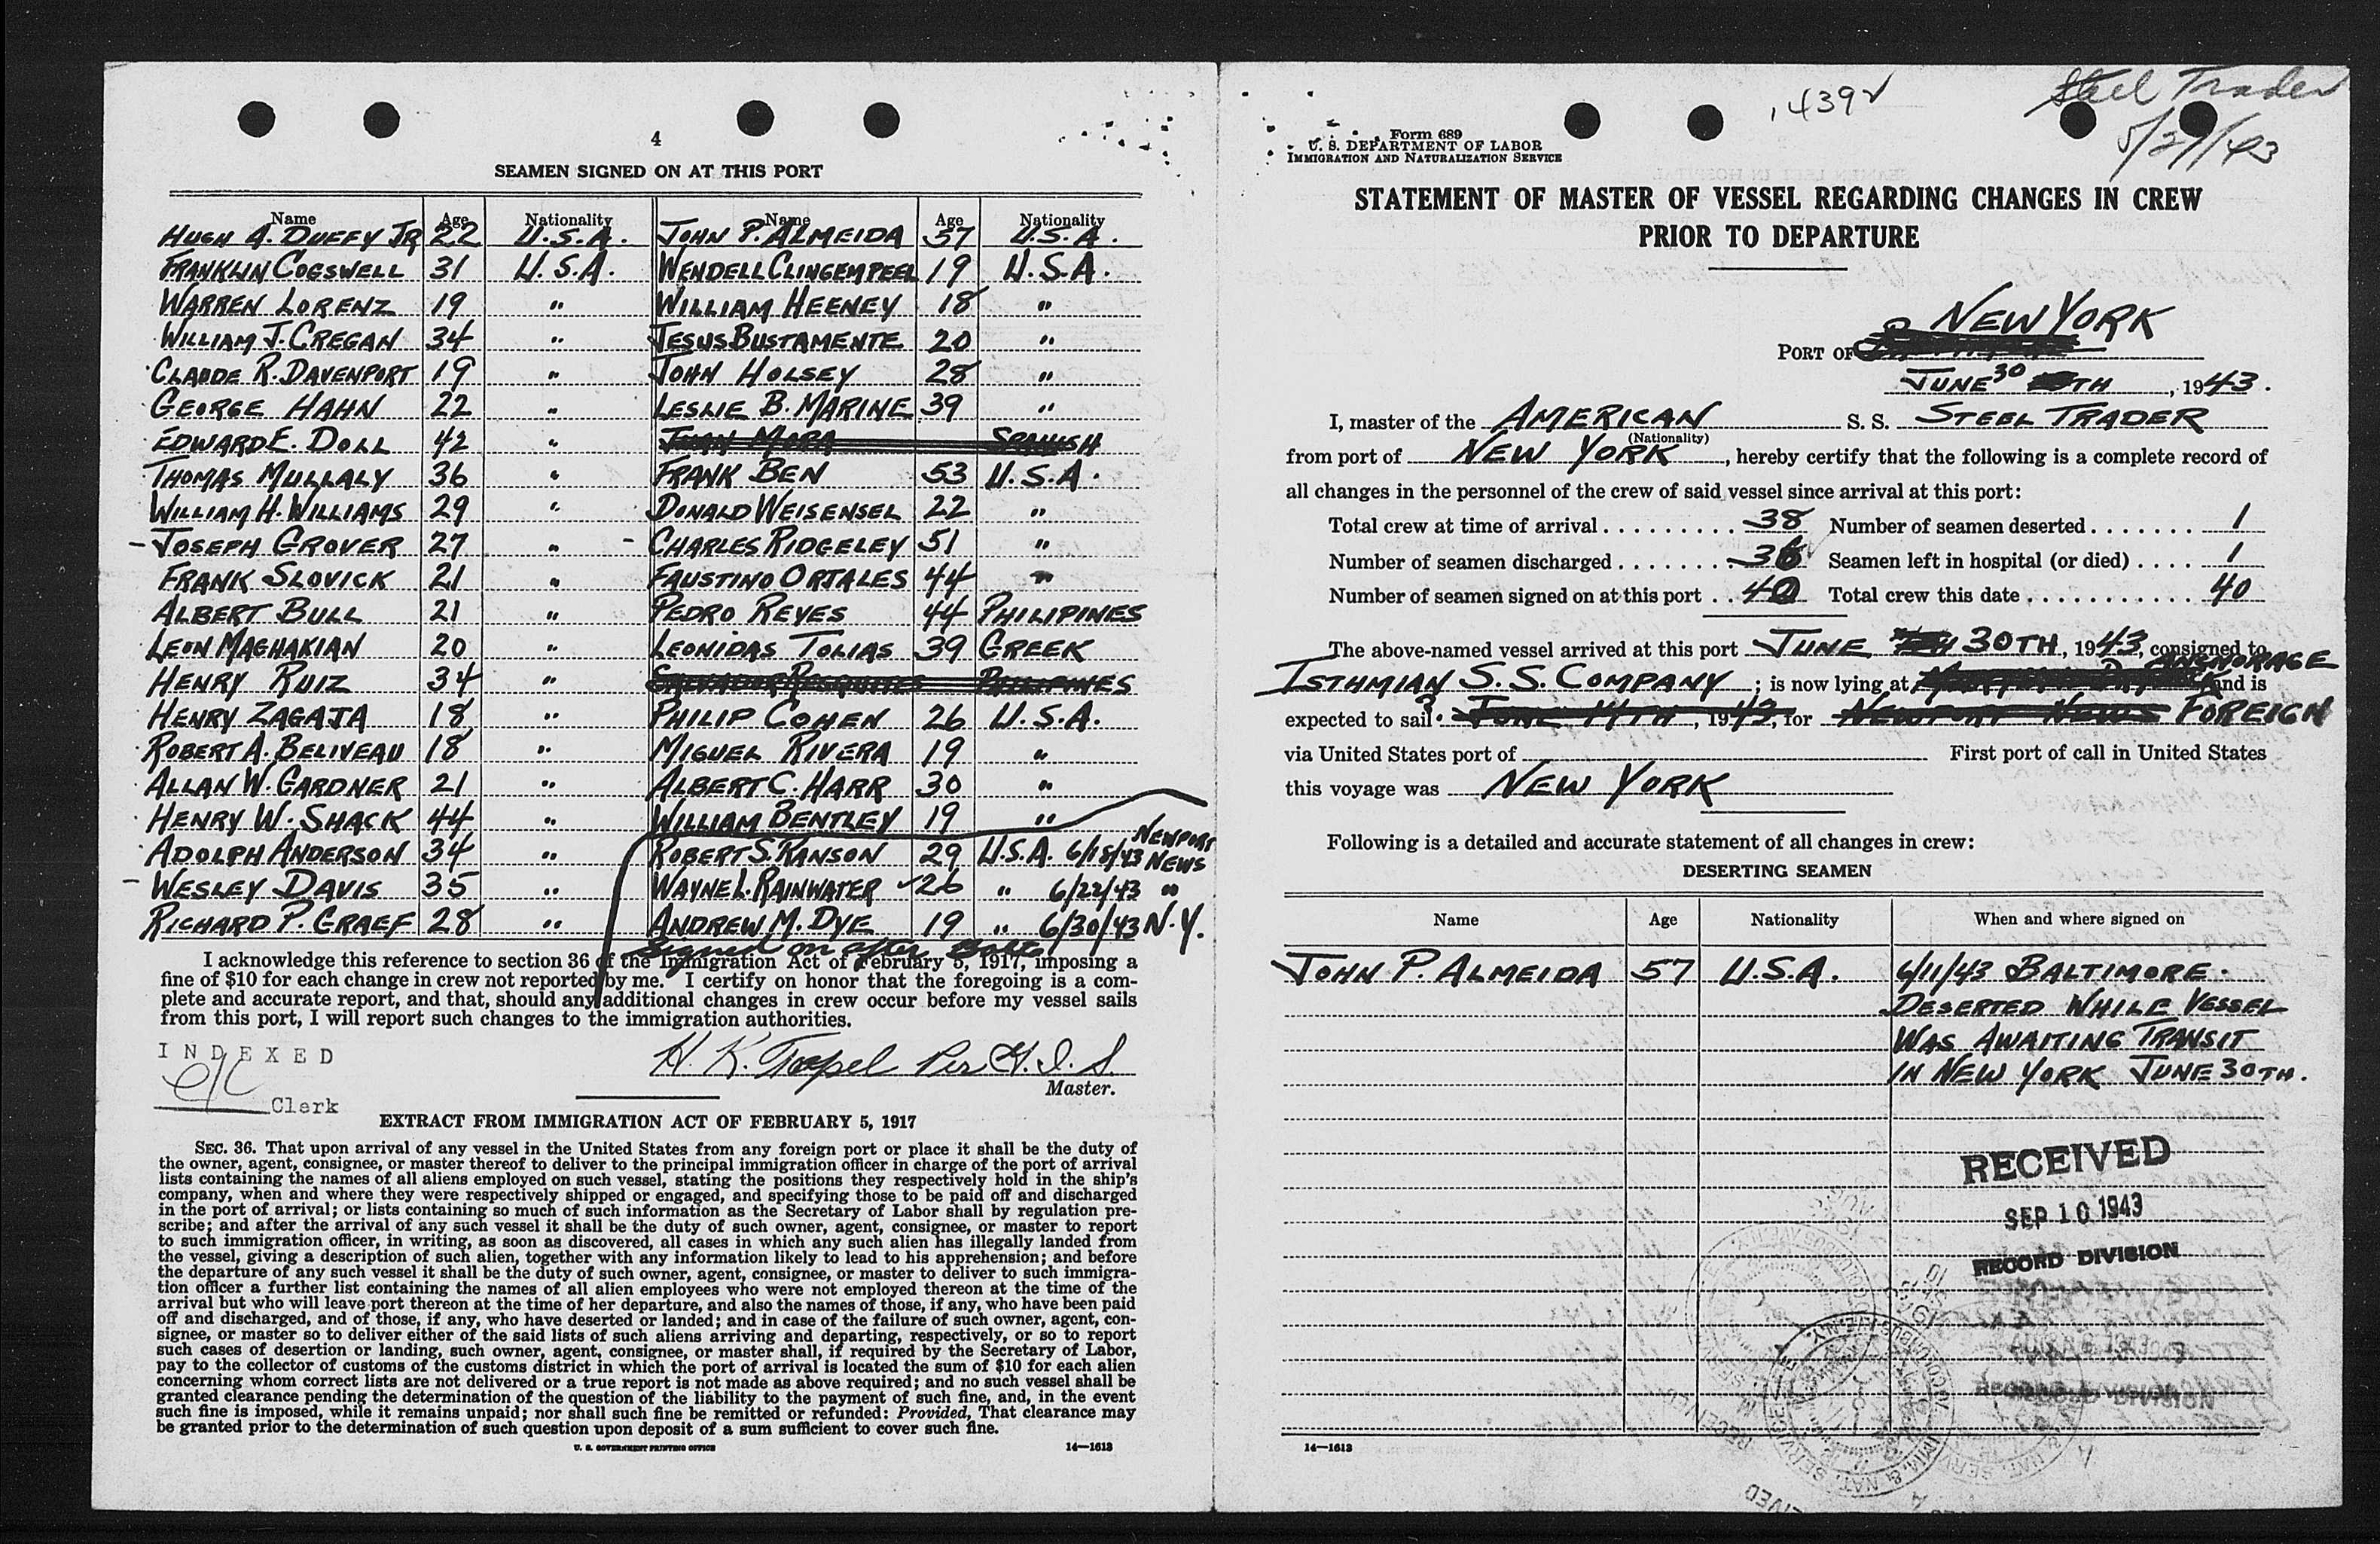 4
SEAMEN SIGNED ON AT THIS PORT
Name Age Nationality Name Age Nationality
HUGH A. DUFFY JR 22 U.S.A. JOHN P. ALMEIDA 57 U.S.A.
FRANKLIN COGSWELL 31 U.S.A. WENDELL CLINGEMPEEL 19 U.S.A.
WARREN LORENZ 19 " WILLIAM HEENEY 18 "
WILLIAM J. CREGAN 34 " JESUS BUSTAMENTE 20 "
CLAUDE R. DAVENPORT 19 " JOHN HOLSEY 28 "
GEORGE HAHN 22 " LESLIE B. MARINE 39 "
EDWARD E. DOLL 42 " JUAN MORA SPANISH
THOMAS MULLALY 36 " FRANK BEN 53 U.S.A.
WILLIAM H. WILLIAMS 29 " DONALD WEISENSEL 22 "
- JOSEPH GROVER 27 " - CHARLES RIDGELEY 51 "
FRANK SLOVICK 21 " FAUSTINO ORTALES 44 "
ALBERT BULL 21 " PEDRO REYES 44 PHILIPINES
LEON MAGHAKIAN 20 " LEONIDAS TOLIAS 39 GREEK
HENRY RUIZ 34 " SALVADOR PHILIPINES
HENRY ZAGAJA 18 " PHILIP COHEN 26 U.S.A.
ROBERT A. BELIVEAU 18 " MIGUEL RIVERA 19 "
ALLAN W. GARDNER 21 " ALBERT C. HARR 30 "
HENRY W. SHACK 44 " WILLIAM BENTLEY 19 "
ADOLPH ANDERSON 34 " ROBERT S. RANSON 29 U.S.A. 6/18/43 NEWPORT NEWS
- WESLEY DAVIS 35 " WAYNE L. RAINWATER ✓26 " 6/22/43 "
RICHARD P. GRAEF 28 " ANDREW M. DYE 19 " 6/30/43 N.Y.
Signed on after Balto
I acknowledge this reference to section 36 of the Immigration Act of February 5, 1917, imposing a
fine of $10 for each change in crew not reported by me. I certify on honor that the foregoing is a com-
plete and accurate report, and that, should any additional changes in crew occur before my vessel sails
from this port, I will report such changes to the immigration authorities.
INDEXED
Clerk
H. K. Toepel Per H. I. S.
Master.
EXTRACT FROM IMMIGRATION ACT OF FEBRUARY 5, 1917
SEC. 36. That upon arrival of any vessel in the United States from any foreign port or place it shall be the duty of
the owner, agent, consignee, or master thereof to deliver to the principal immigration officer in charge of the port of arrival
lists containing the names of all aliens employed on such vessel, stating the positions they respectively hold in the ship's
company, when and where they were respectively shipped or engaged, and specifying those to be paid off and discharged
in the port of arrival; or lists containing so much of such information as the Secretary of Labor shall by regulation pre-
scribe; and after the arrival of any such vessel it shall be the duty of such owner, agent, consignee, or master to report
to such immigration officer, in writing, as soon as discovered, all cases in which any such alien has illegally landed from
the vessel, giving a description of such alien, together with any information likely to lead to his apprehension; and before
the departure of any such vessel it shall be the duty of such owner, agent, consignee, or master to deliver to such immigra-
tion officer a further list containing the names of all alien employees who were not employed thereon at the time of the
arrival but who will leave port thereon at the time of her departure, and also the names of those, if any, who have been paid
off and discharged, and of those, if any, who have deserted or landed; and in case of the failure of such owner, agent, con-
signee, or master so to deliver either of the said lists of such aliens arriving and departing, respectively, or so to report
such cases of desertion or landing, such owner, agent, consignee, or master shall, if required by the Secretary of Labor,
pay to the collector of customs of the customs district in which the port of arrival is located the sum of $10 for each alien
concerning whom correct lists are not delivered or a true report is not made as above required; and no such vessel shall be
granted clearance pending the determination of the question of the liability to the payment of such fine, and, in the event
such fine is imposed, while it remains unpaid; nor shall such fine be remitted or refunded: Provided, That clearance may
be granted prior to the determination of such question upon deposit of a sum sufficient to cover such fine.
U. S. GOVERNMENT PRINTING OFFICE 14—1613
1439✓
Steel Trader
5/29/43
Form 689
U. S. DEPARTMENT OF LABOR
IMMIGRATION AND NATURALIZATION SERVICE
STATEMENT OF MASTER OF VESSEL REGARDING CHANGES IN CREW
PRIOR TO DEPARTURE
NEW YORK
PORT OF
JUNE 30 TH, 1943.
I, master of the AMERICAN S. S. STEEL TRADER
(Nationality)
from port of NEW YORK, hereby certify that the following is a complete record of
all changes in the personnel of the crew of said vessel since arrival at this port:
Total crew at time of arrival 38 Number of seamen deserted 1
Number of seamen discharged 36 Seamen left in hospital (or died) 1
Number of seamen signed on at this port 40 Total crew this date 40
The above-named vessel arrived at this port JUNE 30TH, 1943, consigned to
ANCHORAGE
ISTHMIAN S. S. COMPANY; is now lying at and is
expected to sail ? JUNE 14TH, 1943, for NEWPORT NEWS FOREIGN
via United States port of First port of call in United States
this voyage was NEW YORK
Following is a detailed and accurate statement of all changes in crew:
DESERTING SEAMEN
Name Age Nationality When and where signed on
JOHN P. ALMEIDA 57 U.S.A. 6/11/43 BALTIMORE.
DESERTED WHILE VESSEL
WAS AWAITING TRANSIT
IN NEW YORK JUNE 30TH.
RECEIVED
SEP 10 1943
RECORD DIVISION
14—1613